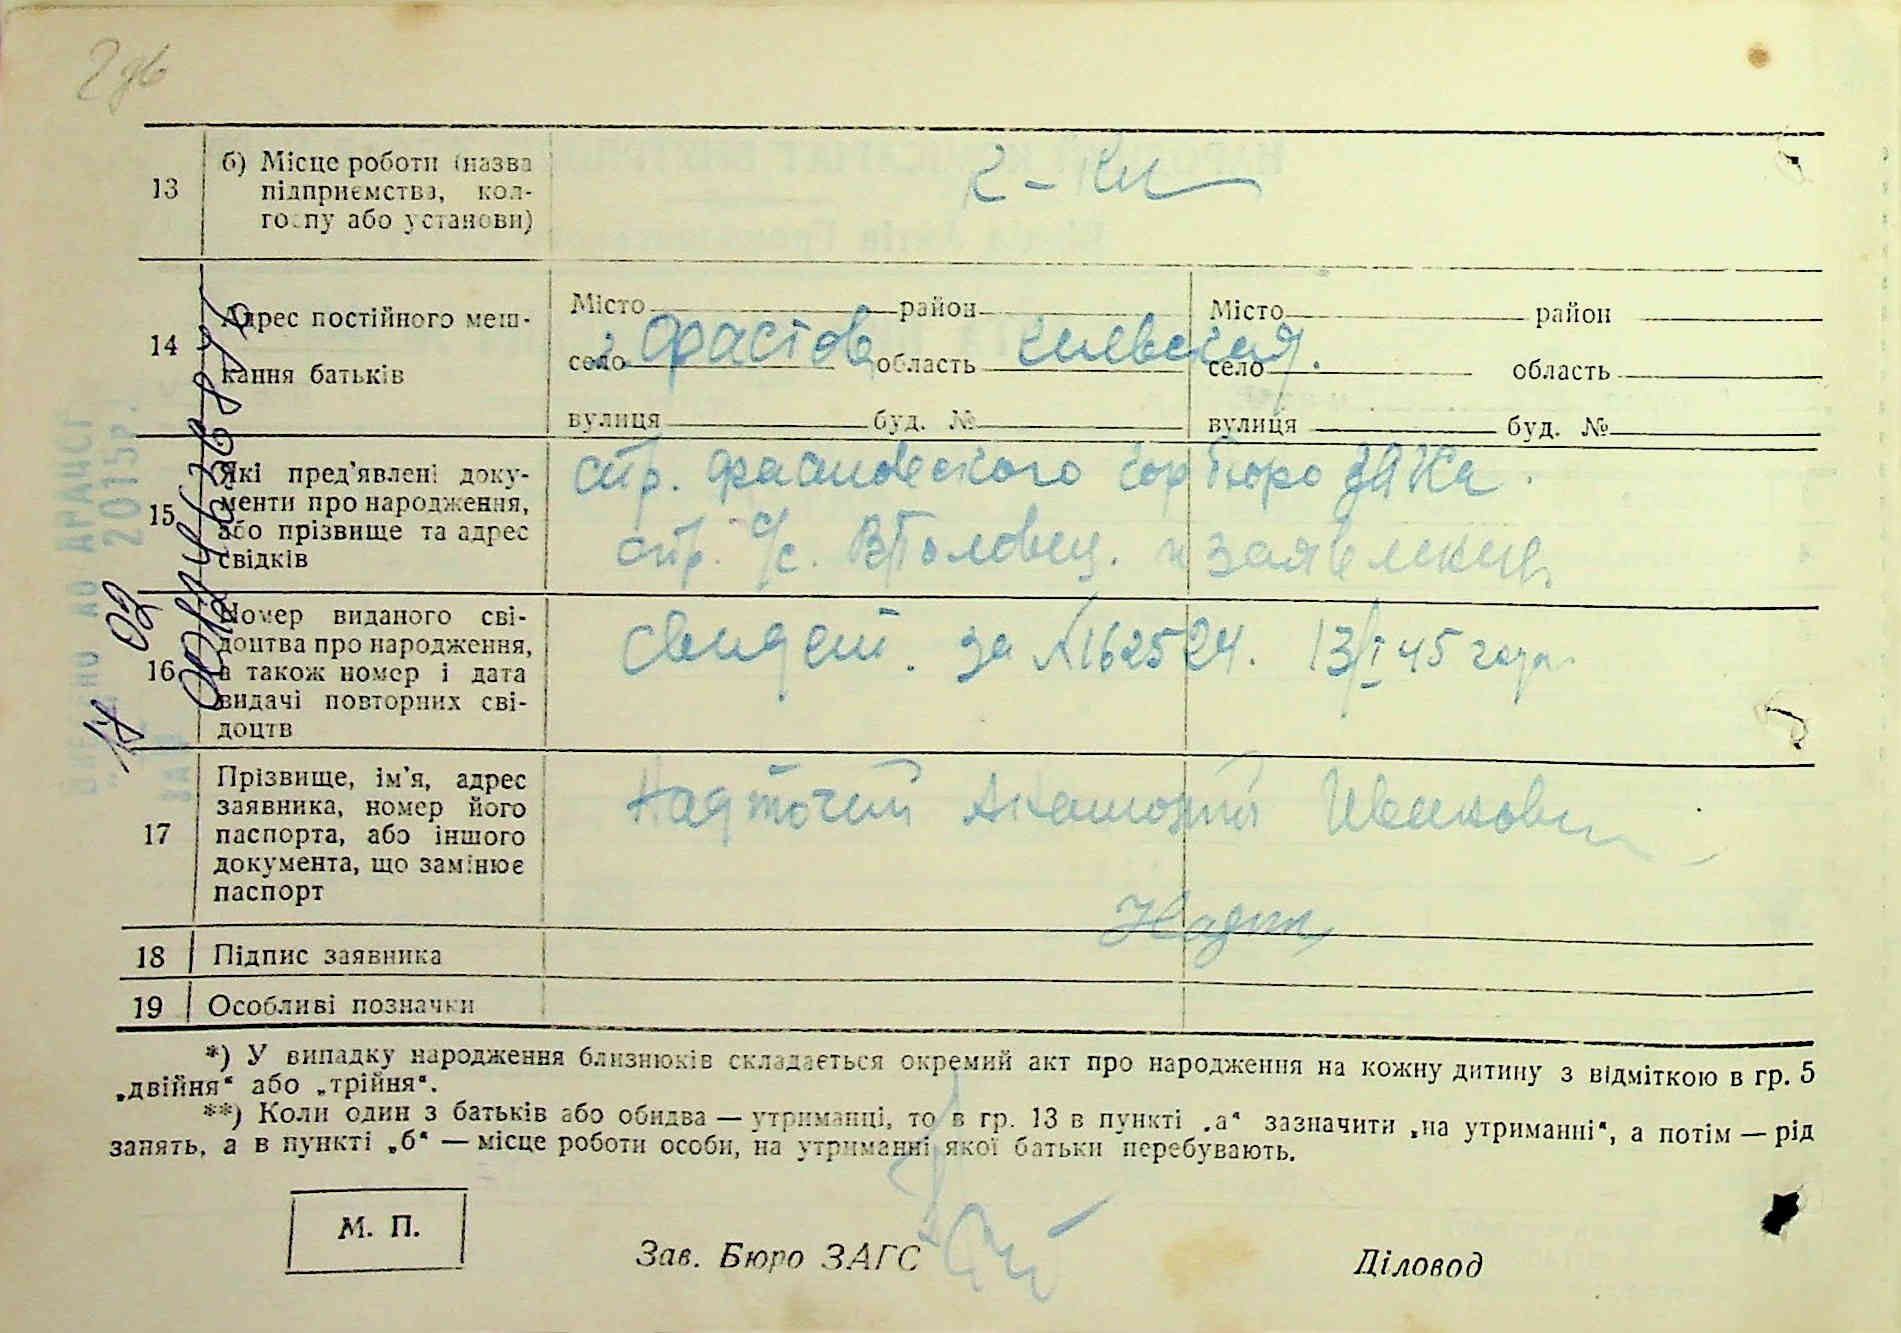 13
б) Місце роботи (назва
підприємства, кол-
госпу або установи)
14
Адрес постійного меш-
кання батьків
Місто район
г. Фастов Киевская.
село область
вулиця буд. №
Місто район
село область
вулиця буд. №
15
Які пред'явлені доку-
менти про народження,
або прізвище та адрес
свідків
спр. Фастовского гор Бюро ЗАГСа.
спр. с/с. и заявлении
16
Номер виданого сві-
доцтва про народження,
а також номер і дата
видачі повторних сві-
доцтв
Свидет. за №162524. 13/I 45 года.
17
Прізвище, ім'я, адрес
заявника, номер його
паспорта, або іншого
документа, що замінює
паспорт
Надточий Анатолий Иванович
18
Підпис заявника
19
Особливі позначки
*) У випадку народження близнюків складається окремий акт про народження на кожну дитину з відміткою в гр. 5
„двійня“ або „трійня“.
**) Коли один з батьків або обидва — утриманці, то в гр. 13 в пункті „а“ зазначити „на утриманні“, а потім — рід
занять, а в пункті „б“ — місце роботи особи, на утриманні якої батьки перебувають.
М. П.
Зав. Бюро ЗАГС
Діловод
ДРАЦСГ
2015р.
17 02